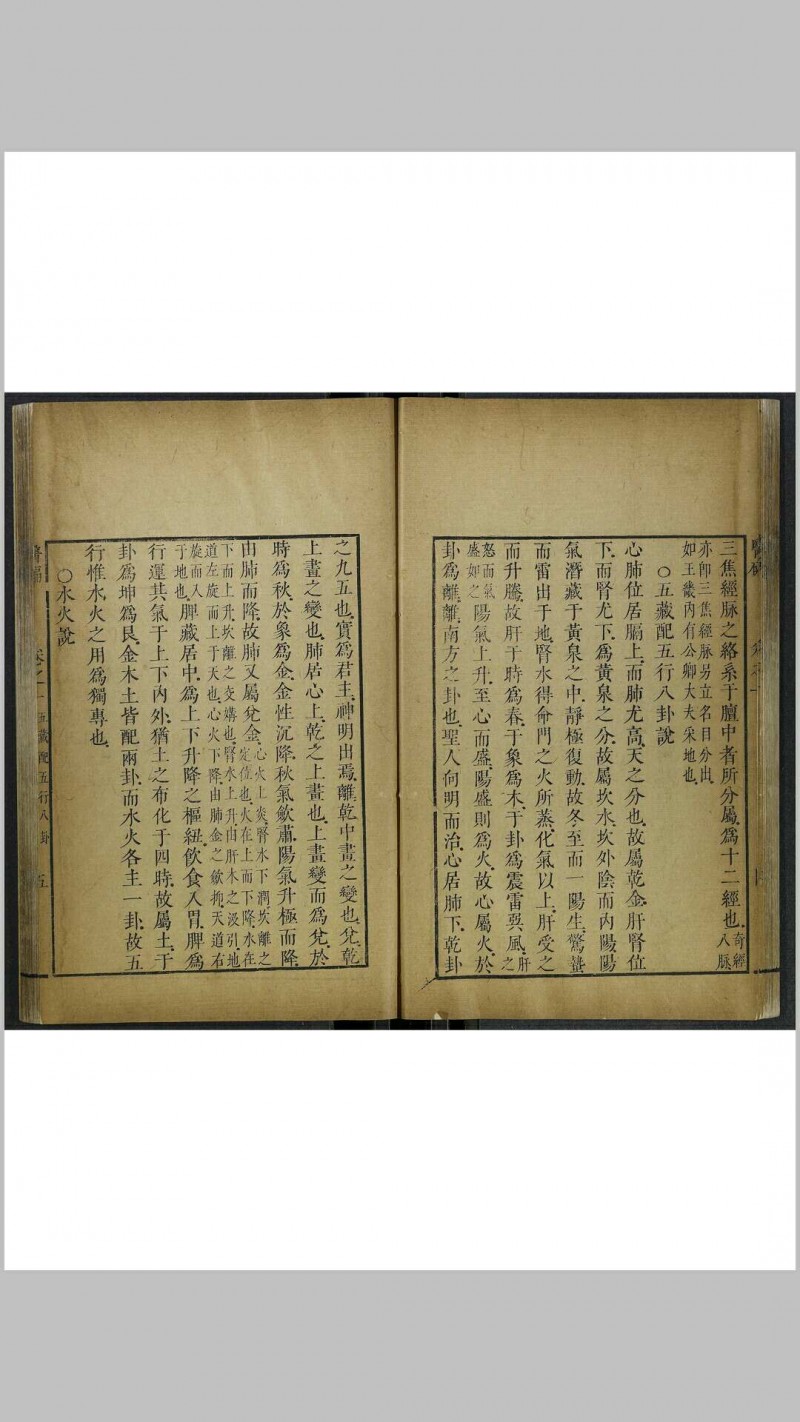 三焦經脉之絡系于膻中者所分屬爲十二經也奇經八脉
亦卽三焦經脉另立名目分出
如王畿內有公卿大夫采地也
○五藏配五行八卦說
心肺位居膈上而肺尤高天之分也故屬乾金肝腎位
下而腎尤下爲黃泉之分故屬坎水坎外陰而內陽陽
氣潛藏于黃泉之中靜極復動故冬至而一陽生驚蟄
而雷出于地腎水得命門之火所蒸化氣以上肝受之
而升騰故肝于時爲春于象爲木于卦爲震雷巽風肝之
怒而氣盛如之陽氣上升至心而盛陽盛則爲火故心屬火於
卦爲離離南方之卦也聖人向明而治心居肺下乾卦
之九五也實爲君主神明出焉離乾中畫之變也兌乾
上畫之變也肺居心上乾之上畫也上畫變而爲兌於
時爲秋於象爲金金性沉降秋氣歛肅陽氣升極而降
由肺而降故肺又屬兌金心火上炎腎水下潤坎離之定位也火在上而下降水在
下而上升坎離之交媾也腎水上升由肝木之汲引地
道左旋而上于天也心火下降由肺金之歛抑天道右
旋而入于地也脾藏居中爲上下升降之樞紐飲食入胃脾爲
行運其氣于上下內外猶土之布化于四時故屬土于
卦爲坤爲艮金木土皆配兩卦而水火各主一卦故五
行惟水火之用爲獨專也
○水火說
卷之一
五藏配五行八卦
五